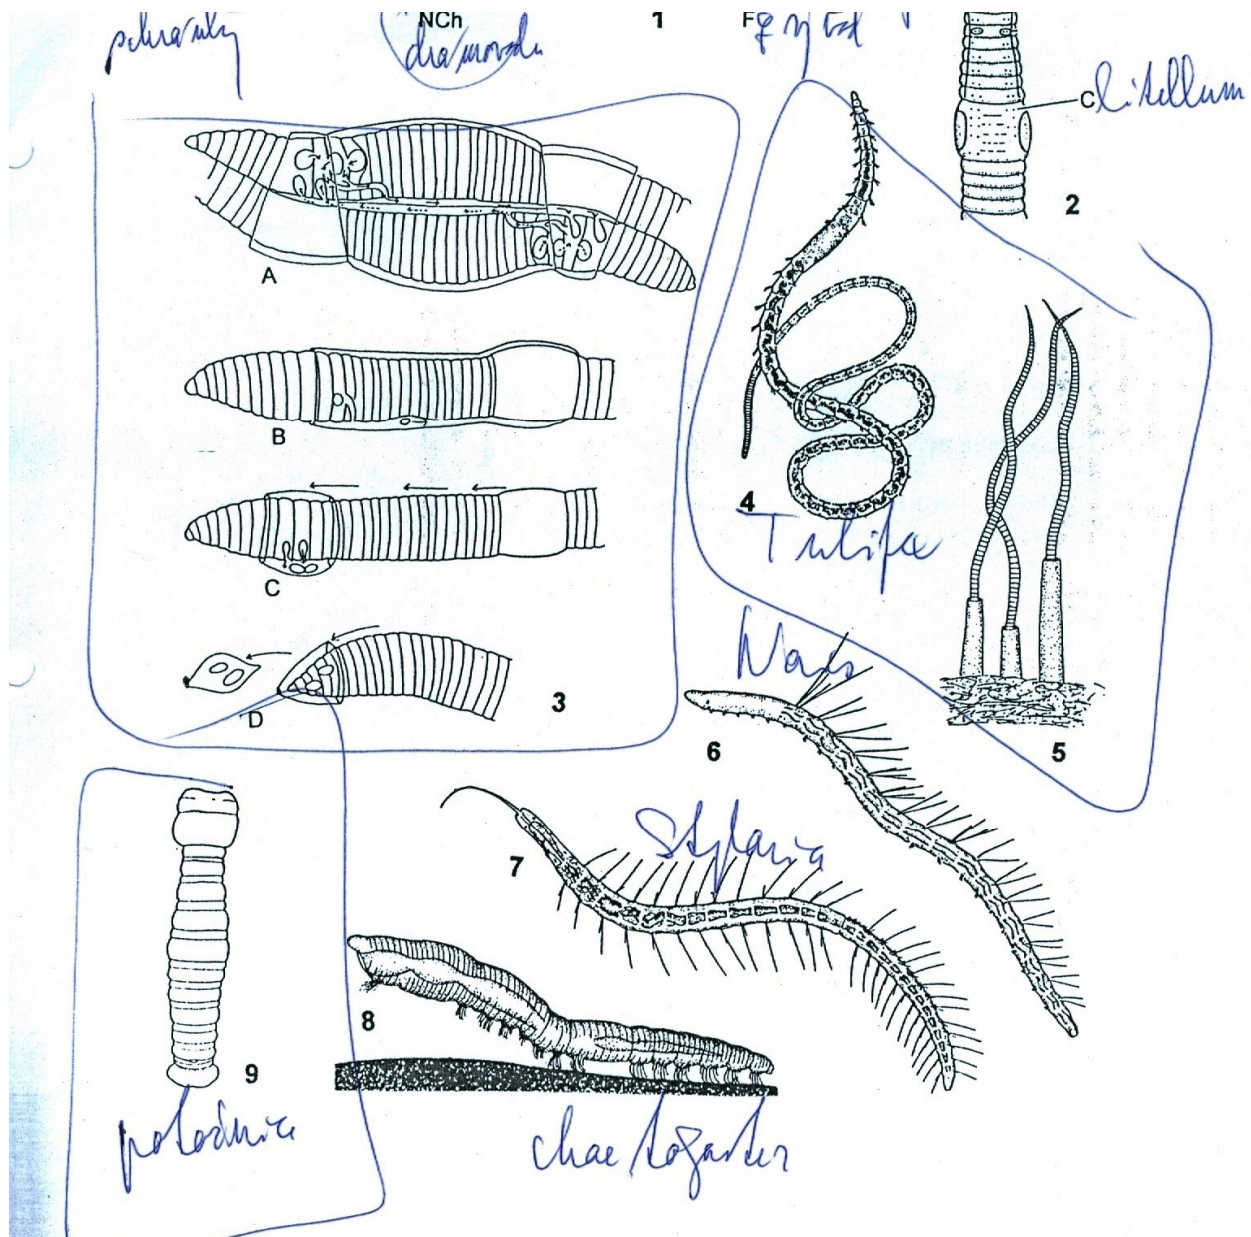 NCh
1
F
C litellum
2
A
B
C
D
3
4
Tubifex
5
Nais
6
Stylaria
7
8
9
potočnice
chaetogaster